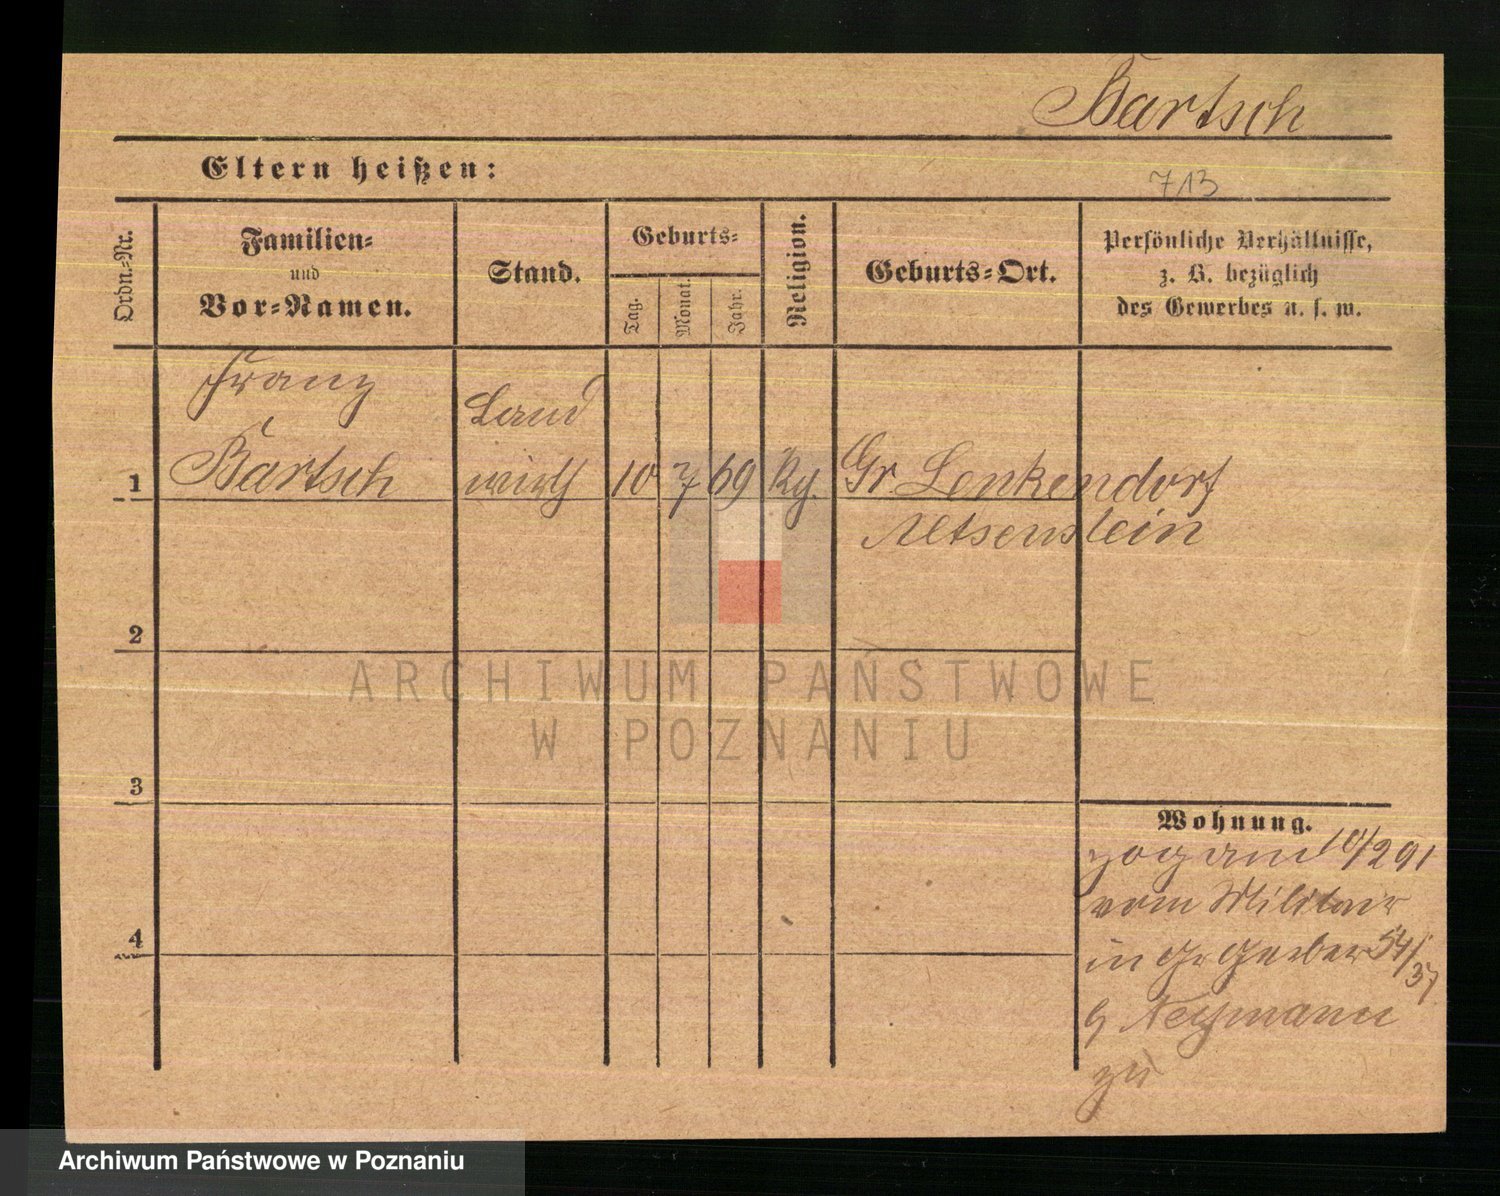 Bartsch
Eltern heißen:
713
Ordn.-Nr.
Familien-
und
Vor-Namen.
Stand.
Geburts-
Tag.
Monat.
Jahr.
Religion.
Geburts-Ort.
Persönliche Verhältnisse,
z. B. bezüglich
des Gewerbes u. s. w.
Franz
Bartsch
Land
wirth
1
10
7
69
Gr. Lenkendorf
2
3
4
Wohnung.
zog am 10/2 91
vom Militair
in Gr Gerber 54/
37
Neymann
zu
ARCHIWUM PAŃSTWOWE
W POZNANIU
Archiwum Państwowe w Poznaniu